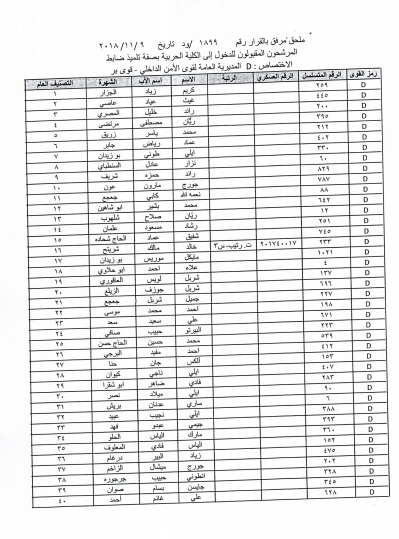 ملحق مرفق بالقرار رقم ١٨٩٩ /ود تاريخ ٢٠١٨/١١/٩
المرشحون المقبولون للدخول إلى الكلية الحربية بصفة تلميذ ضابط
الاختصاص: D المديرية العامة لقوى الأمن الداخلي - قوى بر
رمز القوى الرقم المتسلسل الرقم العسكري الرتبة الاسم اسم الأب الشهرة التصنيف العام
D ٢٥٩ كريم زياد الجزار ١
D ٤٤٥ غيث عياد عاصي ٢
D ٢٠٠ رائد خليل المصري ٣
D ٣٩٥ ريان مصطفى مرتضى ٤
D ٢١٢ محمد ياسر زريق ٥
D ٤٠٢ عماد رياض جابر ٦
D ٣٣٠ ايلي طوني بو زيدان ٧
D ٦٠ نزار عادل السنطباي ٨
D ٨٢٩ رائد حمزه شريف ٩
D ٧٨٧ جورج مارون عون ١٠
D ٨٨ نعمه الله كابي جعجع ١١
D ٦٤٢ محمد بشير ابو شاهين ١٢
D ١٢ ريان صلاح شلهوب ١٣
D ٢٥١ رشاد مسعود عثمان ١٤
D ٧٤٥ شفيق عماد الحاج شحاده ١٥
D ٢٣٣ ٢٠١٧٤٠٠١٧ ت. رتيب-س٣ خالد مالك شريتح ١٦
D ١٠٢١ مايكل موريس بو زيدان ١٧
D ٤ علاء احمد ابو حلاوي ١٨
D ١٣٧ شربل لويس العاقوري ١٩
D ٦٩٦ شربل جوزف الزيلع ٢٠
D ٢٢٧ جميل شربل جعجع ٢١
D ١٩٨ احمد محمد موسى ٢٢
D ٦٧١ علي سعيد سعد ٢٣
D ٢٢٣ البيرتو حبيب صافي ٢٤
D ٥٣٩ محمد حسين الحاج حسن ٢٥
D ٤١٢ احمد مفيد البرجي ٢٦
D ١٥٣ الكس جان حنا ٢٧
D ٤٠٧ ايلي ناجي كيوان ٢٨
D ٢٨٣ فادي ضاهر ابو شقرا ٢٩
D ٩٠ ايلي ميلاد نصر ٣٠
D ٦ ساري عدنان بريش ٣١
D ٣٨٨ ايلي نجيب عبيد ٣٢
D ٣٩٣ جيمي عبدو فهد ٣٣
D ٣٦٠ مارك الياس الحلو ٣٤
D ١٥٢ الياس فادي المعلوف ٣٥
D ٤٧٥ زياد البير درغام ٣٦
D ٢٠٢ جورج ميشال الزاخم ٣٧
D ٣٢٨ انطوني حبيب جرجوره ٣٨
D ٣٤٥ جايسن بسام صوان ٣٩
D ٦٢٨ علي غانم أحمد ٤٠